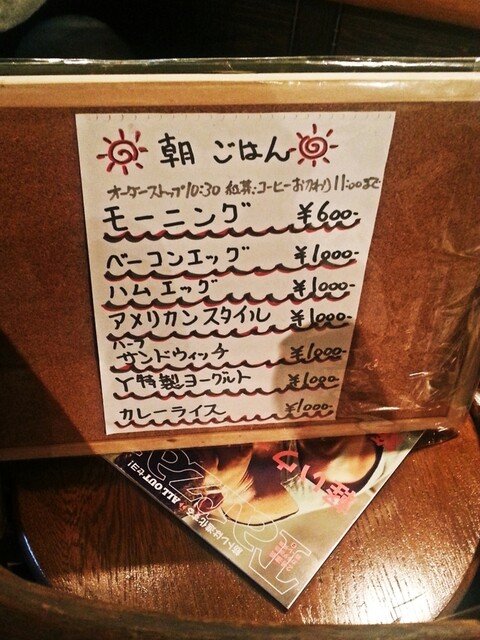 朝ごはん
オーダーストップ10:30 紅茶・コーヒーおかわり11:00まで
モーニング ¥600-
ベーコンエッグ ¥1000-
ハムエッグ ¥1000-
アメリカンスタイル ¥1000-
ハーフ
サンドウィッチ ¥1000-
Y特製ヨーグルト ¥1000-
カレーライス ¥1000-
ALL OUT